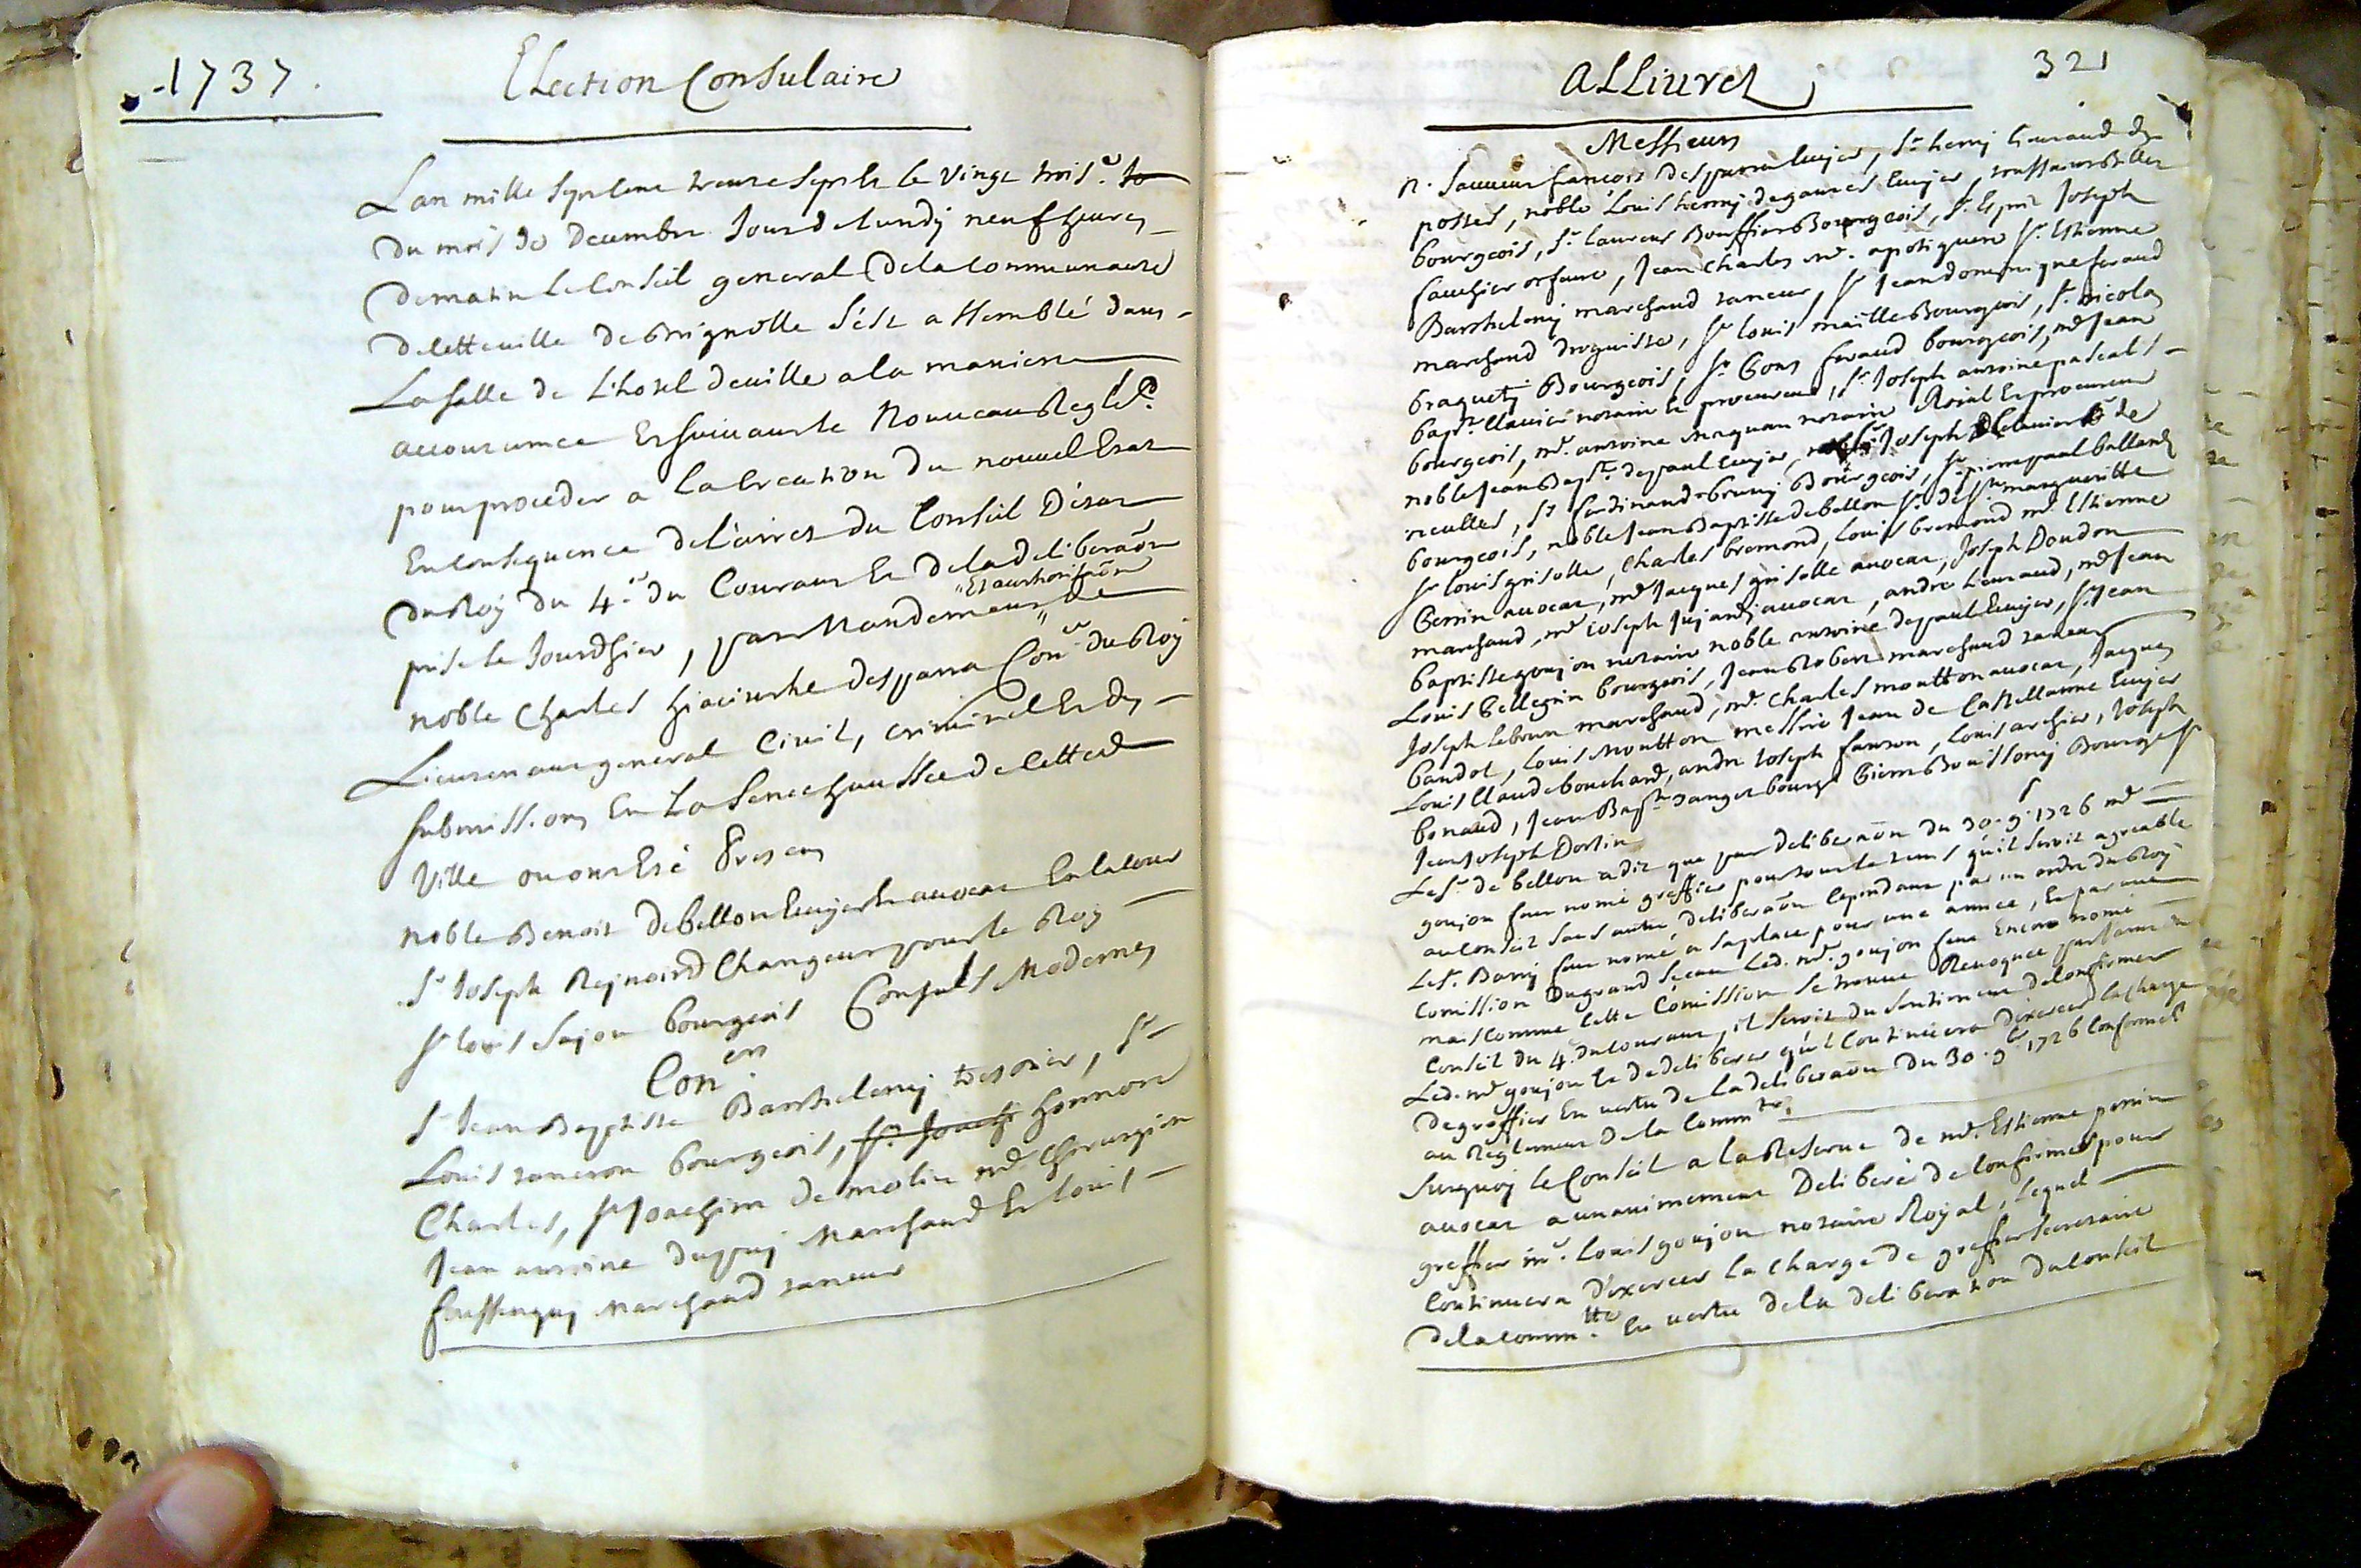 1737.
Election Consulaire
Lan mille sept cens trente sept et le vingt trois.e
du mois de decembre Jour de lundy neuf heures
du matin le Conseil general de la Communauté
de cette ville de Brignolle s'est assemblé dans
La salle de L'hotel de ville a la maniere
accoutumée Et suivant le Nouveau Reglet.
pour proceder a la Creation du nouvel Estat
En Consequence de l'arret du Conseil D'Etat
du Roy du 4.e du Courant Et de la deliberaõn
prise le Jourdhier, par Mandement "Et authorisaõn" de
noble Charles hiacinthe desparra Con.er du Roy
Lieutenant general Civil, criminel Et des
submissions En La Senechaussée de Cette d.
Ville ou ont Eté Presens
noble Benoit de bellon Ecuyer et avocat En la Cour
S.r Joseph Reynoird Changeur pour le Roy
S.r louis Sajou bourgeois Consuls Modernes
Con.ers
S.r Jean Baptiste Barthelemy tresorier, S.r
Louis tameron bourgeois, honnoré
Charles, S.r Joachim de molin m.e Chirurgien
Jean antoine dupuy Marchand Et louis
fussenquy Marchand taneur
ALLivrez
321
Messieurs
n. Sauveur francois Desparra Ecuyer, S.r henry Lieutaud des
postes, noble Louis henry de gautes Ecuyer,
bourgeois, S.r laurens Bouffier Bourgeois, S.r Esprit Joseph
fauchier orfevre, Jean Charles m.e apotiquere S.r Estienne
Barthelemy marchand taneur, S.r Jean dominique feraud
marchand droguiste, S.r louis maille Bourgeois, S.r nicolas
braquety Bourgeois, S.r Cons feraud bourgeois, m.e Jean
bap.te Clavier notaire Et procureur, S.r Joseph antoine pascalis
bourgeois, m.e antoine Maquan notaire Roial Et procureur
noble Jean Bap.te de paul Ecuyer, Joseph de Clavier S.r de
neulles, S.r ferdinand bruny Bourgeois, S.r pierre paul ballardy
bourgeois, noble Jean Baptiste de bellon S.r de S.te margueritte
S.r louis grisolle, Charles bremond, Louis bremond m.e Estienne
Perrin avocat, m.e Jacques grisolle avocat, Joseph Doudon
marchand, m.e Joseph Jujardy avocat, andre Lieutaud, m.e Jean
baptiste goujon notaire noble antoine de paul Ecuyer, S.r Jean
Louis bellegrin bourgeois, Jean Robert marchand taneur
Joseph lebrun marchand, m.e Charles moutton avocat, Jacques
baudot, Louis Moutton messire Jean de Castellanne Ecuyer
Louis Claude bouchard, andre Joseph fanton, Louis archier, Joseph
bonaud, Jean Bap.te danget bourg.s Pierre Bouissony Bourg.s S.r
Jean Joseph Dortin
Le S.r de bellon a dit que par deliberaõn du 30. 9. 1726 m.e
goujon feut nomé greffier pour tout le tems qu'il seroit agreable
au Conseil sans autre deliberaõn Cependant par un ordre du Roy
Le S.r Barry feut nomé a sa place pour une année, Et par une
Comission du grand Sceau Led. m.e goujon feut Encore nomé
mais Comme Cette Comission se trouve Revoquée par l'arret du
Conseil du 4. du Courant, il seroit du sentiment de Confirmer
Led. m.e goujon Et de deliberer qu'il Continuera d'exercer la Charge
de greffier En vertu de la deliberaõn du 30. 9.bre 1726 Conforme.t
au Reglement de la Comm.té
Surquoy le Conseil a la Reserve de m.e Estienne perrin
avocat a unanimement Deliberé de Confirmer pour
greffier m.e Louis goujon notaire Royal, Lequel
Continuera D'exercer la Charge de greffier Secretaire
de la Comm.té En vertu de la deliberation du Conseil